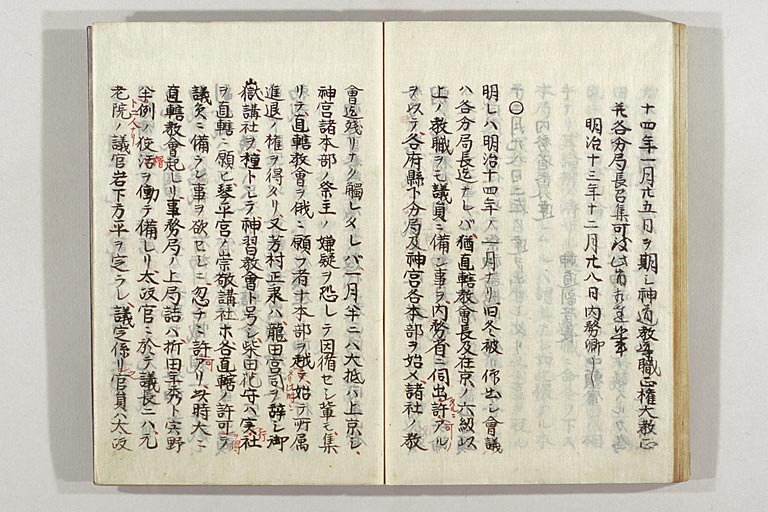 十四年一月廿五日ヲ期シ神道教導職正権大教正
并各分局長召集可致此旨相達候事
明治十三年十二月廿八日内務卿
明レハ明治十四年ノ一月ナリ旧冬被仰出シ會議
ハ各分局長迄ナレバ猶直轄教會長及在京ノ六級以
上ノ教職ヲモ議員ニ備ン事ヲ内務省ニ伺出許アル
ヲ以テ各府縣下分局及神宮各本部ヲ始メ諸社ノ教
會迄残リナク觸レタレバ一月半ニハ大抵ハ上京シ
神宮諸本部ノ祭主ノ嫌疑ヲ恐レテ因循セシ輩モ集
リテ直轄教會ヲ俄ニ願フ者十本部ヲ越テ始テ所属
進退ノ權ヲ得タリ又芳村正秉ハ龍田宮司ヲ辞シ御
嶽講社ヲ種トシテ神習教會ト号シ柴田花守ハ實行社
ヲ直轄ニ願ヒ琴平宮ノ崇敬講社ホ各直轄ノ許可ヲ
議矣ニ備ラン事ヲ欲セシニ忽チニ許可アリ此時大ニ
直轄教會起レリ事務局ノ上局詰ハ折田年秀ト宍野
半例ノ佼活ヲ働テ備レリ太政官ニ於テ議長ニハ元
老院ノ議官岩下方平ヲ定ラレ議定係リ官員ハ太政